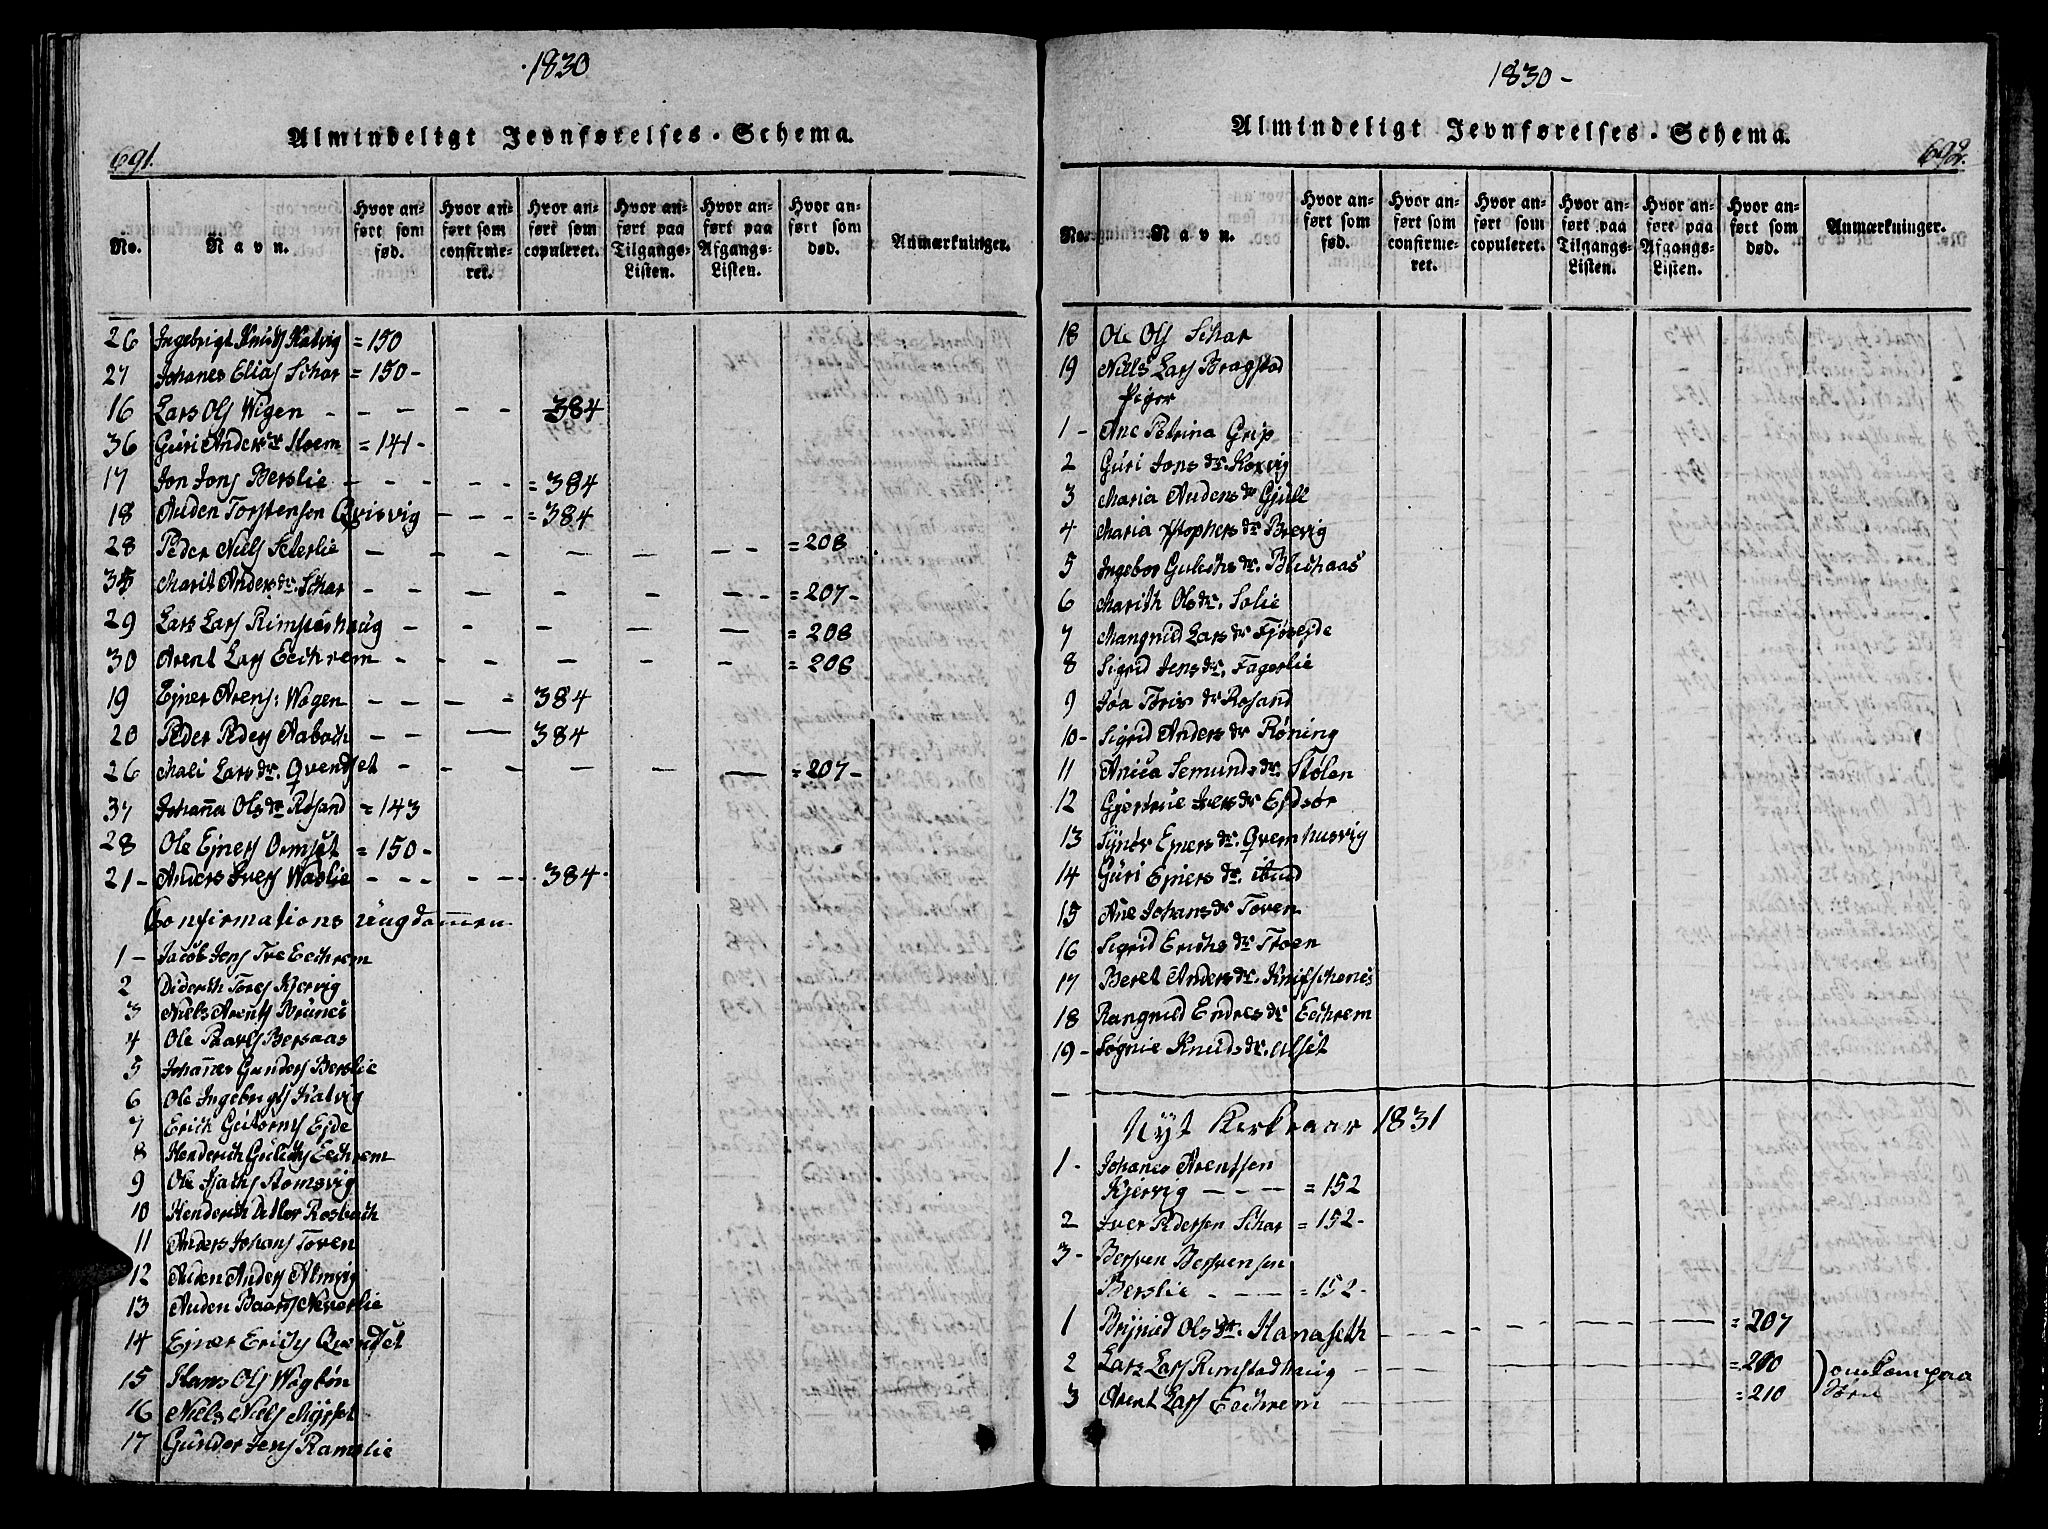 1830
Almindeligt Jevnførelses-Schema.
691.
No. Navn. Hvor anført som fød. Hvor anført som confirmeret. Hvor anført som copuleret. Hvor anført paa Tilgangs-Listen. Hvor anført paa Afgangs-Listen. Hvor anført som død. Anmærkninger.
26 Ingebrigt Knuds Kalvig = 150
27 Johanes Elias Schar = 150 -
16 Lars Ols Wigen - - - - - 384
36 Guri Andersdr Stoem = 141 -
17 Jon Jons Berslie - - - - - = 384
18 Auden Torstensen Qvisvig - - - = 384
28 Peder Niels Seterlie - - - - - - = 208
35 Marit Andersdr. Schar - - - - - - = 207 -
29 Lars Lars Rimstadhaug - - - - - = 208
30 Arent Lars Eechrem - - - - - - = 208
19 Ejner Arens: Wagen - - - - 384
20 Peder Peders Aaboch - - - 384
26 Mali Larsdr. Qvendset - - - - - = 207 -
37 Johanna Olsdr Røsand = 143
28 Ole Ejners Ormset = 150 -
21 - Anders Ivers Waslie - - - - - 384 -
Confirmations ungdommen
1 - Jacob Jens Tre Eechrem
2 Diderich Tores Kjervig
3 Niels Arents Brunes
4 Ole Paavls Bersaas
5 Johannes Gunders Berslie
6 Ole Ingebrigts Kalvig
7 Erich Gutorms Ejde
8 Henderich Gulichs Eechrem
9 Ole Romsvig
10 Henderich Rosboch
11 Anders Johans Toven
12 Auden Anders Almvig
13 Auden Baars Neverlie
14 Ejner Erichs Qvendset
15 Hans Ols Wagbøn
16 Niels Niels Myrset
17 Gunder Jens Ramslie
1830 -
Almindeligt Jevnførelses-Schema.
692.
No. Navn. Hvor anført som fød. Hvor anført som confirmeret. Hvor anført som copuleret. Hvor anført paa Tilgangs-Listen. Hvor anført paa Afgangs-Listen. Hvor anført som død. Anmærkninger.
18 Ole Ols Schar
19 Niels Lars Bragstad
Piger
1 - Ane Petrina Grip
2 Guri Jonsdr. Korvig
3 Maria Audensdr Gjull
4 Maria Xstophersdr Brevig
5 Ingebor Gulichsdr. Blichaas
6 Marith Olsdr. Solie
7 Mangnild Larsdr Fjøsejde
8 Sigrid Jensdr. Fagerlie
9 Rosand
10 - Sigrid Andersdr Røning
11 Anica Semundsdr. Stølen
12 Gjertrue Iversdr Ejdsør
13 Synør Ejnersdr. Qvernhusvig
14 Guri Ejnersdr.
15 Ane Johansdr Toven
16 Sigrid Erichsdr. Stoen
17 Beret Andersdr. Knifschenes
18 Rangnild Endresdr Eechrem
19 - Søgnie Knudsdr. Ulset
Nyt Kirkeaar 1831
1 - Johanes Arentsen
Kjervig - - - = 152
2 Iver Pedersen Schar = 152 -
3 - Bersven Bersvensen
Berslie - - = 152 -
1 Brynild Olsdr. Hanaseth - - - - - - = 207
2 Lars Lars Rimstadhaug - - - - = 210 ) omkom paa
3 Arent Lars Eechrem - - - - = 210 Søen